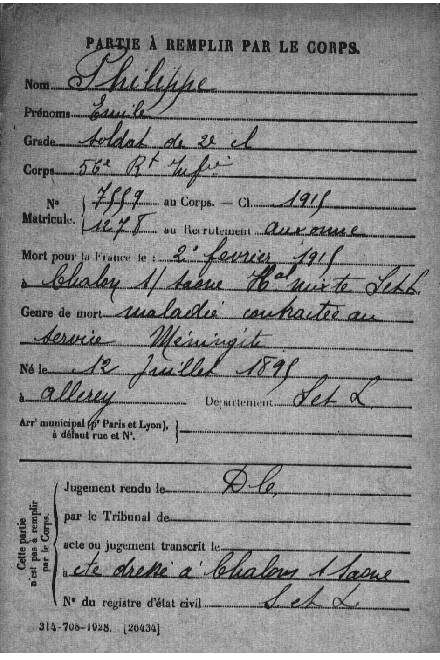 PARTIE À REMPLIR PAR LE CORPS.
Nom Philippe
Prénoms Emile
Grade soldat de 2e cl
Corps 56e Rt Infie
No Matricule. 7559 au Corps. — Cl. 1915
1278 au Recrutement auxonne
Mort pour la France le : 2 fevrier 1915
à Chalon s/ Saone Hal mixte S et L
Genre de mort maladie contractée au
service Méningite
Né le 12 Juillet 1895
à allerey Département S et L
Arrt municipal (pr Paris et Lyon), à défaut rue et No.
Cette partie n'est pas à remplir par le Corps.
Jugement rendu le D C,
par le Tribunal de
acte ou jugement transcrit le
à dressé à Chalons s Saone
No du registre d'état civil S et L
314-708-1928. [26434]